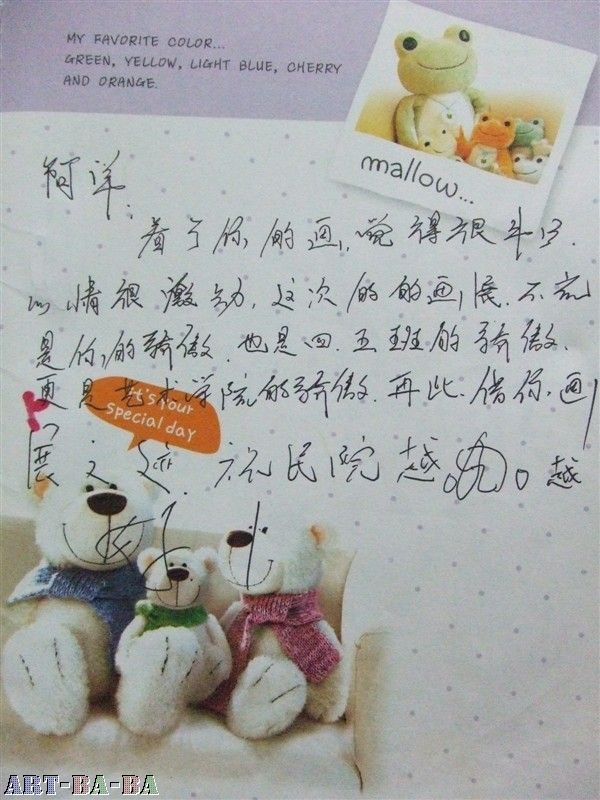 MY FAVORITE COLOR...
GREEN, YELLOW, LIGHT BLUE, CHERRY
AND ORANGE.
mallow...
阿详：
看了你的画，觉得很牛B.
心情很激动，这次的的画展.不光
是你的骄傲.也是四.五班的骄傲.
更是艺术学院的骄傲.再此借你画
展之迹.祝民院越办。越
好
It's your
special day
ART-BA-BA